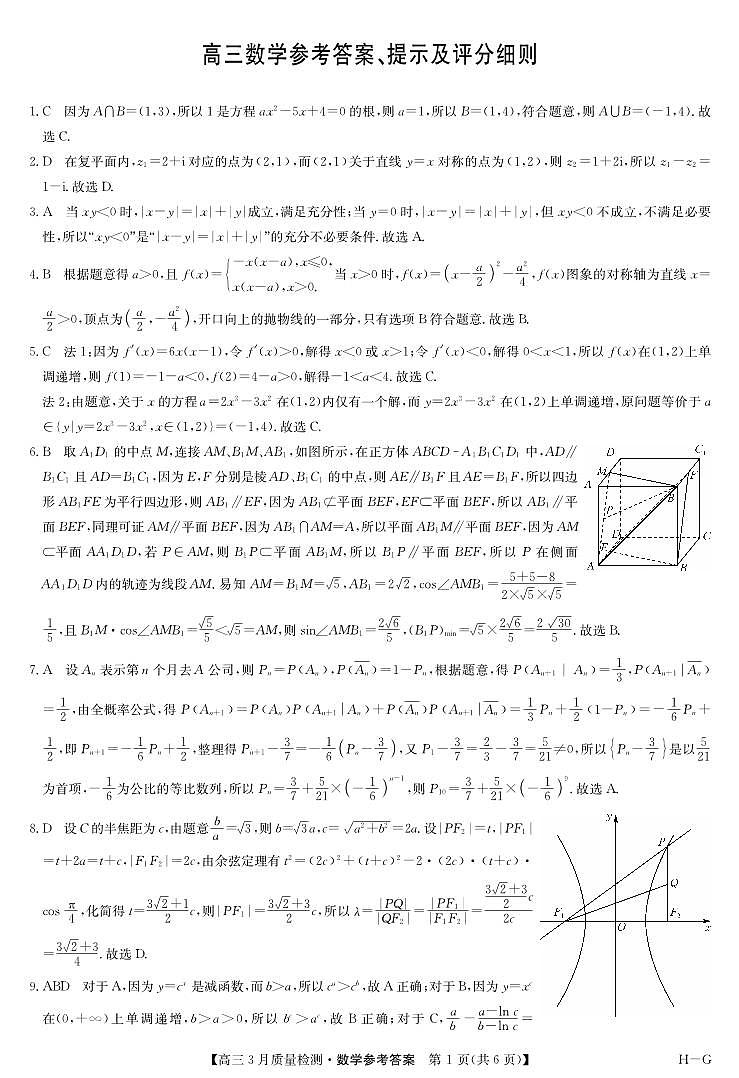 高三数学参考答案、提示及评分细则
1.C 因为 A∩B=(1,3),所以 1 是方程 ax²-5x+4=0 的根,则 a=1,所以 B=(1,4),符合题意,则 A∪B=(-1,4).故
选 C.
2.D 在复平面内,z₁=2+i 对应的点为(2,1),而(2,1)关于直线 y=x 对称的点为(1,2),则 z₂=1+2i,所以 z₁-z₂=
1-i.故选 D.
3.A 当 xy<0 时,|x-y|=|x|+|y|成立,满足充分性;当 y=0 时,|x-y|=|x|+|y|,但 xy<0 不成立,不满足必要
性,所以“xy<0”是“|x-y|=|x|+|y|”的充分不必要条件.故选 A.
4.B 根据题意得 a>0,且 f(x)={-x(x-a),x⩽0, x(x-a),x>0. 当 x>0 时,f(x)=(x-a/2)²-a²/4,f(x)图象的对称轴为直线 x=
a/2>0,顶点为(a/2,-a²/4),开口向上的抛物线的一部分,只有选项 B 符合题意.故选 B.
5.C 法 1:因为 f′(x)=6x(x-1),令 f′(x)>0,解得 x<0 或 x>1;令 f′(x)<0,解得 0<x<1,所以 f(x)在(1,2)上单
调递增,则 f(1)=-1-a<0,f(2)=4-a>0,解得-1<a<4.故选 C.
法 2:由题意,关于 x 的方程 a=2x³-3x² 在(1,2)内仅有一个解,而 y=2x³-3x² 在(1,2)上单调递增,原问题等价于 a
∈{y|y=2x³-3x²,x∈(1,2)}=(-1,4).故选 C.
6.B 取 A₁D₁ 的中点 M,连接 AM、B₁M、AB₁,如图所示,在正方体 ABCD-A₁B₁C₁D₁ 中,AD∥
B₁C₁ 且 AD=B₁C₁,因为 E,F 分别是棱 AD、B₁C₁ 的中点,则 AE∥B₁F 且 AE=B₁F,所以四边
形 AB₁FE 为平行四边形,则 AB₁∥EF,因为 AB₁⊄平面 BEF,EF⊂平面 BEF,所以 AB₁∥平
面 BEF,同理可证 AM∥平面 BEF,因为 AB₁∩AM=A,所以平面 AB₁M∥平面 BEF,因为 AM
⊂平面 AA₁D₁D,若 P∈AM,则 B₁P⊂平面 AB₁M,所以 B₁P∥平面 BEF,所以 P 在侧面
AA₁D₁D 内的轨迹为线段 AM.易知 AM=B₁M=√5,AB₁=2√2,cos∠AMB₁=(5+5-8)/(2×√5×√5)=
1/5,且 B₁M·cos∠AMB₁=√5/5<√5=AM,则 sin∠AMB₁=2√6/5,(B₁P)min=√5×2√6/5=2√30/5.故选 B.
7.A 设 Aₙ 表示第 n 个月去 A 公司,则 Pₙ=P(Aₙ),P(A̅ₙ)=1-Pₙ,根据题意,得 P(Aₙ₊₁|Aₙ)=1/3,P(Aₙ₊₁|A̅ₙ)
=1/2,由全概率公式,得 P(Aₙ₊₁)=P(Aₙ)P(Aₙ₊₁|Aₙ)+P(A̅ₙ)P(Aₙ₊₁|A̅ₙ)=1/3Pₙ+1/2(1-Pₙ)=-1/6Pₙ+
1/2,即 Pₙ₊₁=-1/6Pₙ+1/2,整理得 Pₙ₊₁-3/7=-1/6(Pₙ-3/7),又 P₁-3/7=2/3-3/7=5/21≠0,所以{Pₙ-3/7}是以5/21
为首项,-1/6为公比的等比数列,所以 Pₙ=3/7+5/21×(-1/6)ⁿ⁻¹,则 P₁₀=3/7+5/21×(-1/6)⁹.故选 A.
8.D 设 C 的半焦距为 c,由题意 b/a=√3,则 b=√3a,c=√(a²+b²)=2a.设|PF₂|=t,|PF₁|
=t+2a=t+c,|F₁F₂|=2c,由余弦定理有 t²=(2c)²+(t+c)²-2·(2c)·(t+c)·
cos π/4,化简得 t=(3√2+1)/2 c,则|PF₁|=(3√2+3)/2 c,所以 λ=|PQ|/|QF₂|=|PF₁|/|F₁F₂|=((3√2+3)/2 c)/2c
=(3√2+3)/4.故选 D.
9.ABD 对于 A,因为 y=cˣ 是减函数,而 b>a,所以 cᵃ>cᵇ,故 A 正确;对于 B,因为 y=xᶜ
在(0,+∞)上单调递增,b>a>0,所以 bᶜ>aᶜ,故 B 正确;对于 C,a/b-(a-ln c)/(b-ln c)=
【高三 3 月质量检测·数学参考答案 第 1 页(共 6 页)】 H-G